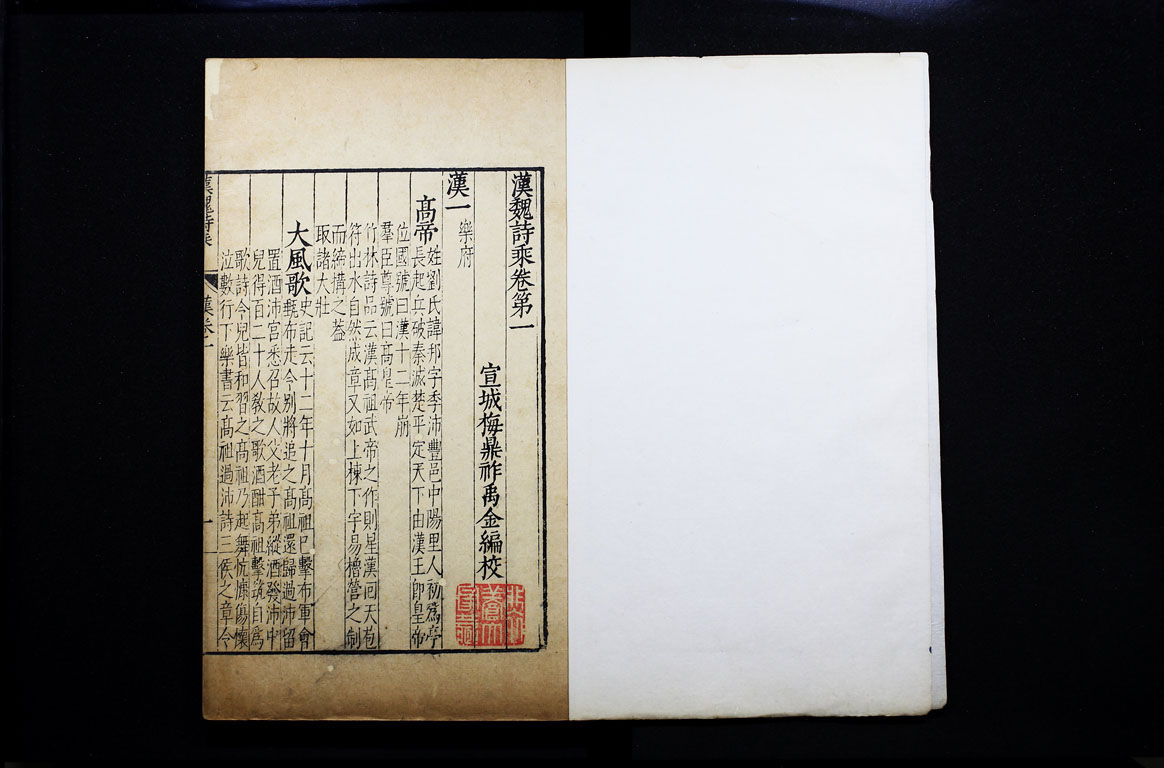 漢魏詩乘卷第一
宣城梅鼎祚禹金編校
漢一
樂府
高帝
姓劉氏諱邦字季沛豐邑中陽里人初爲亭
長起兵破秦滅楚平定天下由漢王即皇帝
位國號曰漢十二年崩
羣臣尊號曰高皇帝
竹林詩品云漢高祖武帝之作則星漢囘天苞
符出水自然成章又如上棟下宇易櫓營之制
而締構之葢
取諸大壯
大風歌
史記云十二年十月高祖已擊布軍會
甀布走令別將追之高祖還歸過沛留
置酒沛宮悉召故人父老子弟縱酒發沛中
兒得百二十人敎之歌酒酣高祖擊筑自爲
歌詩令兒皆和習之高祖乃起舞忼慷傷懷
泣數行下樂書云高祖過沛詩三侯之章令
漢魏詩乘
漢卷一
一